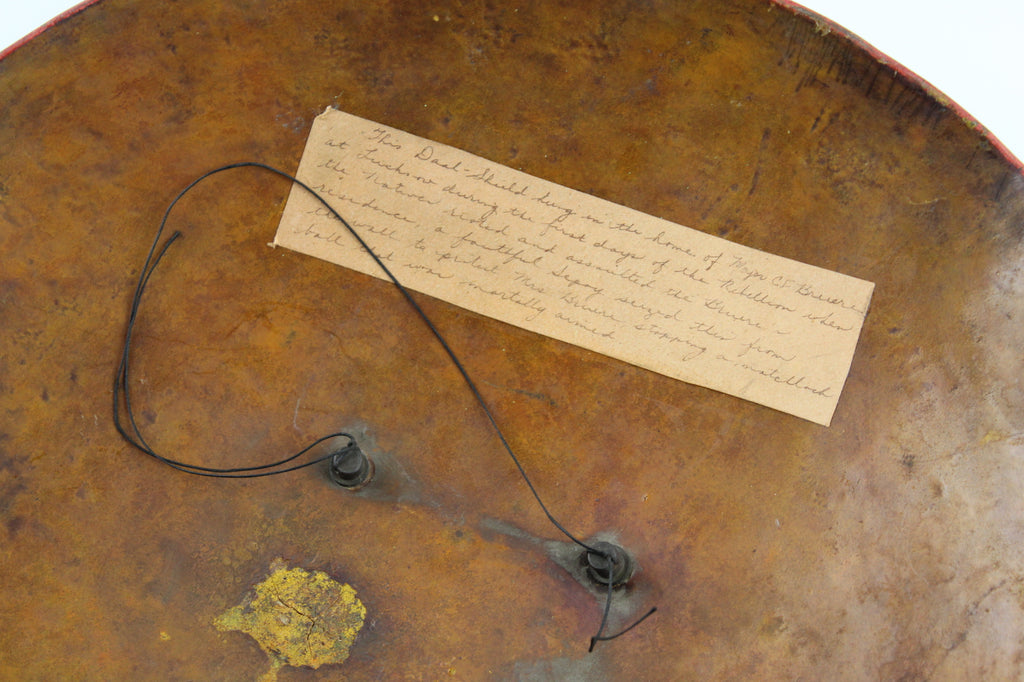 This Daal-Shield hung in the home of Major C.F. Bruere
at Lucknow during the first days of the Rebellion when
the natives rioted and assaulted the Bruere
residence a faithful Sepoy seized this from
the wall to protect Mrs Bruere stopping a matchlock
ball and was mortally